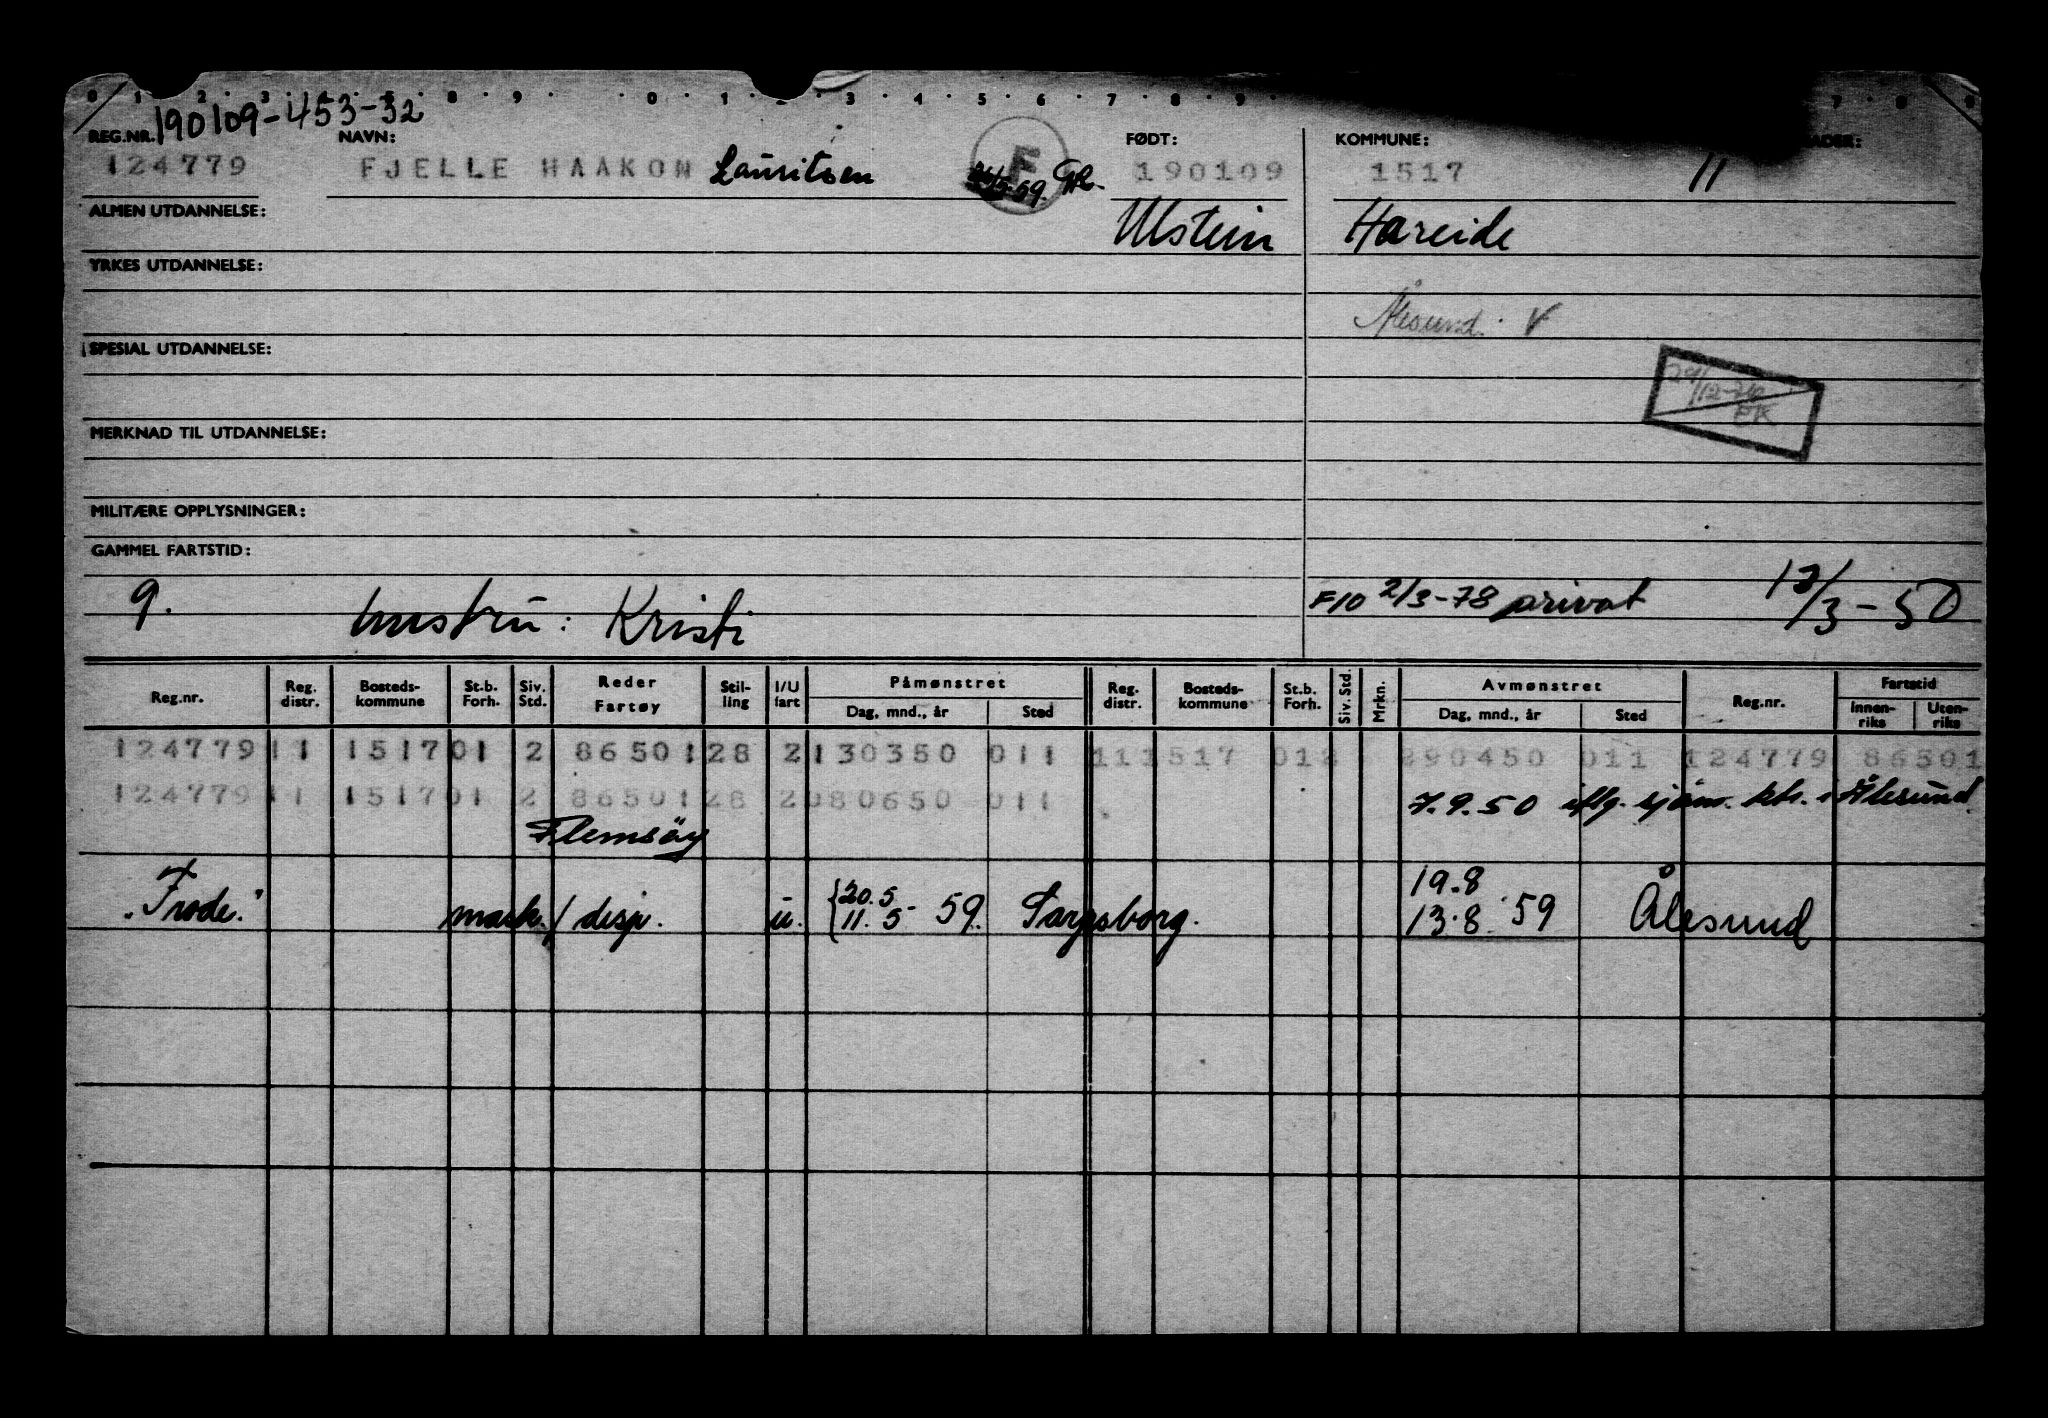 0 1 2 3 8 9 0 1 2 3 4 5 6 7 8 9 7 8 9
190109-453-32
REG.NR. NAVN: FØDT: KOMMUNE:
124779 FJELLE HAAKON Lauritsen F 190109 1517 11
59.
ALMEN UTDANNELSE: Ulstein Hareide
YRKES UTDANNELSE:
Ålesund. V
SPESIAL UTDANNELSE:
29/12-
EK
MERKNAD TIL UTDANNELSE:
MILITÆRE OPPLYSNINGER:
GAMMEL FARTSTID:
9. hustru: Kristi F10 2/3-78 privat 13/3-50
Reg.nr. Reg. distr. Bosteds-kommune St.b. Forh. Siv. Std. Reder Fartøy Stil-ling I/U fart Påmønstret Dag, mnd., år Sted Reg. distr. Bosteds-kommune St.b. Forh. Siv. Std. Mrkn. Avmønstret Dag, mnd., år Sted Reg.nr. Fartstid Innen-riks Uten-riks
124779 11 1517 01 2 86501 28 2 130350 011 11 1517 012 290450 011 124779 86501
124779 11 1517 01 2 86501 28 2 080650 011 7.9.50 iflg. sjøm. ktr. i Ålesund
Flemsøy
"Frode." mask./disp. u. {20.5 11.5 -59. Sarpsborg. 19.8 13.8 59 Ålesund